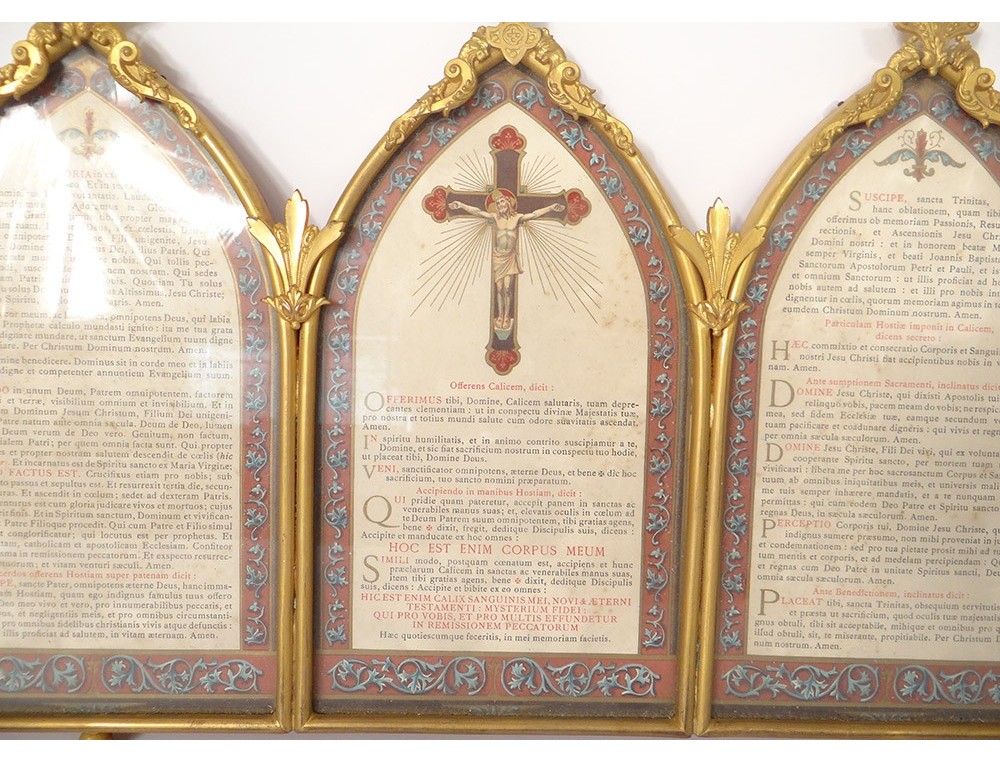 ORIA in
Et in terra
Laud
Adoramus te Glo
tibi propter mag
Domine Deus, Rex cœlestis
Domine Fili unigenite, Jesu
Filius Patris. Qui
nobis. Qui tollis pec-
nem nostram. Qui sedes
Patris nobis. Quoniam Tu solus
u solus Altissimus, Jesu Christe;
Spiritu, Patris. Amen.
cor meum omnipotens Deus, qui labia
Prophetæ calculo mundasti ignito : ita me tua grata
dignare mundare, ut sanctum Evangelium tuum digne
iare. Per Christum Dominum nostrum. Amen.
mine benedicere. Dominus sit in corde meo et in labiis
digne et competenter annuntiem Evangelium suum.
DO in unum Deum, Patrem omnipotentem, factorem
i et terræ, visibilium omnium et invisibilium. Et in
Dominum Jesum Christum, Filium Dei unigeni-
Patre natum ante omnia sæcula. Deum de Deo, lumen
Deum verum de Deo vero. Genitum, non factum,
ialem Patri; per quem omnia facta sunt. Qui propter
et propter nostram salutem descendit de cœlis (hic
r). Et incarnatus est de Spiritu sancto ex Maria Virgine;
O FACTUS EST. Crucifixus etiam pro nobis; sub
to passus et sepultus est. Et resurrexit tertia die, secun-
uras. Et ascendit in cœlum; sedet ad dexteram Patris.
enturus est cum gloria judicare vivos et mortuos; cujus
nis. Et in Spiritum sanctum, Dominum et vivifican-
Patre Filioque procedit. Qui cum Patre et Filio simul
t conglorificatur; qui locutus est per prophetas. Et
ctam, catholicam et apostolicam Ecclesiam. Confiteor
a in remissionem peccatorum. Et exspecto resurrec-
orum; et vitam venturi sæculi. Amen.
cerdos offerens Hostiam super patenam dicit :
IPE, sancte Pater, omnipotens æterne Deus, hanc imma-
am Hostiam, quam ego indignus famulus tuus offero
Deo meo vivo et vero, pro innumerabilibus peccatis, et
us, et negligentiis meis, et pro omnibus circumstanti-
pro omnibus fidelibus christianis vivis atque defunctis :
illis proficiat ad salutem, in vitam æternam. Amen.
Offerens Calicem, dicit :
OFFERIMUS tibi, Domine, Calicem salutaris, tuam depre-
cantes clementiam : ut in conspectu divinæ Majestatis tuæ,
pro nostra et totius mundi salute cum odore suavitatis ascendat,
Amen.
IN spiritu humilitatis, et in animo contrito suscipiamur a te,
Domine, et sic fiat sacrificium nostrum in conspectu tuo hodie,
ut placeat tibi, Domine Deus.
VENI, sanctificator omnipotens, æterne Deus, et bene ✠ dic hoc
sacrificium, tuo sancto nomini præparatum.
Accipiendo in manibus Hostiam, dicit :
QUI pridie quam pateretur, accepit panem in sanctas ac
venerabiles manus suas; et, elevatis oculis in cœlum ad
te Deum Patrem suum omnipotentem, tibi gratias agens,
bene ✠ dixit, fregit, deditque Discipulis suis, dicens :
Accipite et manducate ex hoc omnes :
HOC EST ENIM CORPUS MEUM
SIMILI modo, postquam cœnatum est, accipiens et hunc
præclarum Calicem in sanctas ac venerabiles manus suas,
item tibi gratias agens, bene ✠ dixit, deditque Discipulis
suis, dicens : Accipite et bibite ex eo omnes :
HIC EST ENIM CALIX SANGUINIS MEI, NOVI & ÆTERNI
TESTAMENTI : MYSTERIUM FIDEI :
QUI PRO VOBIS, ET PRO MULTIS EFFUNDETUR
IN REMISSIONEM PECCATORUM
Hæc quotiescumque feceritis, in mei memoriam facietis.
SUSCIPE, sancta Trinitas,
hanc oblationem, quam tib
offerimus ob memoriam Passionis, Resu
rectionis, et Ascensionis Jesu Chr
Domini nostri : et in honorem beatæ M
semper Virginis, et beati Joannis Baptist
Sanctorum Apostolorum Petri et Pauli, et is
et omnium Sanctorum : ut illis proficiat ad h
nobis autem ad salutem : et illi pro nobis int
dignentur in cœlis, quorum memoriam agimus in te
eumdem Christum Dominum nostrum. Amen.
Particulam Hostiæ imponit in Calicem,
dicens secreto :
HÆC commixtio et consecratio Corporis et Sangui
nostri Jesu Christi fiat accipientibus nobis in v
nam. Amen.
Ante sumptionem Sacramenti, inclinatus dicit
DOMINE Jesu Christe, qui dixisti Apostolis tui
relinquo vobis, pacem meam do vobis; ne respi
mea, sed fidem Ecclesiæ tuæ, eamque secundum v
tuam pacificare et coadunare digneris : qui vivis et regn
per omnia sæcula sæculorum. Amen.
DOMINE Jesu Christe, Fili Dei vivi, qui ex volunta
cooperante Spiritu sancto, per mortem tuam
vivificasti : libera me per hoc sacrosanctum Corpus et Sa
uum, ab omnibus iniquitatibus meis, et universis mali
tuis semper inhærere mandatis, et a te nunquam
mittas. Qui cum eodem Deo Patre et Spiritu sancto
regnas Deus, in sæcula sæculorum. Amen.
PERCEPTIO Corporis tui, Domine Jesu Christe, qu
indignus sumere præsumo, non mihi proveniat in j
et condemnationem : sed pro tua pietate prosit mihi ad tu
tum mentis et corporis, et ad medelam percipiendam : Qu
et regnas cum Deo Patre in unitate Spiritus sancti, De
omnia sæcula sæculorum. Amen.
Ante Benedictionem, inclinatus dicit :
PLACEAT tibi, sancta Trinitas, obsequium servituti
et præsta ut sacrificium, quod oculis tuæ majestati
gnus obtuli, tibi sit acceptabile, mihique et omnibus pro q
illud obtuli, sit, te miserante, propitiabile. Per Christum D
num nostrum. Amen.